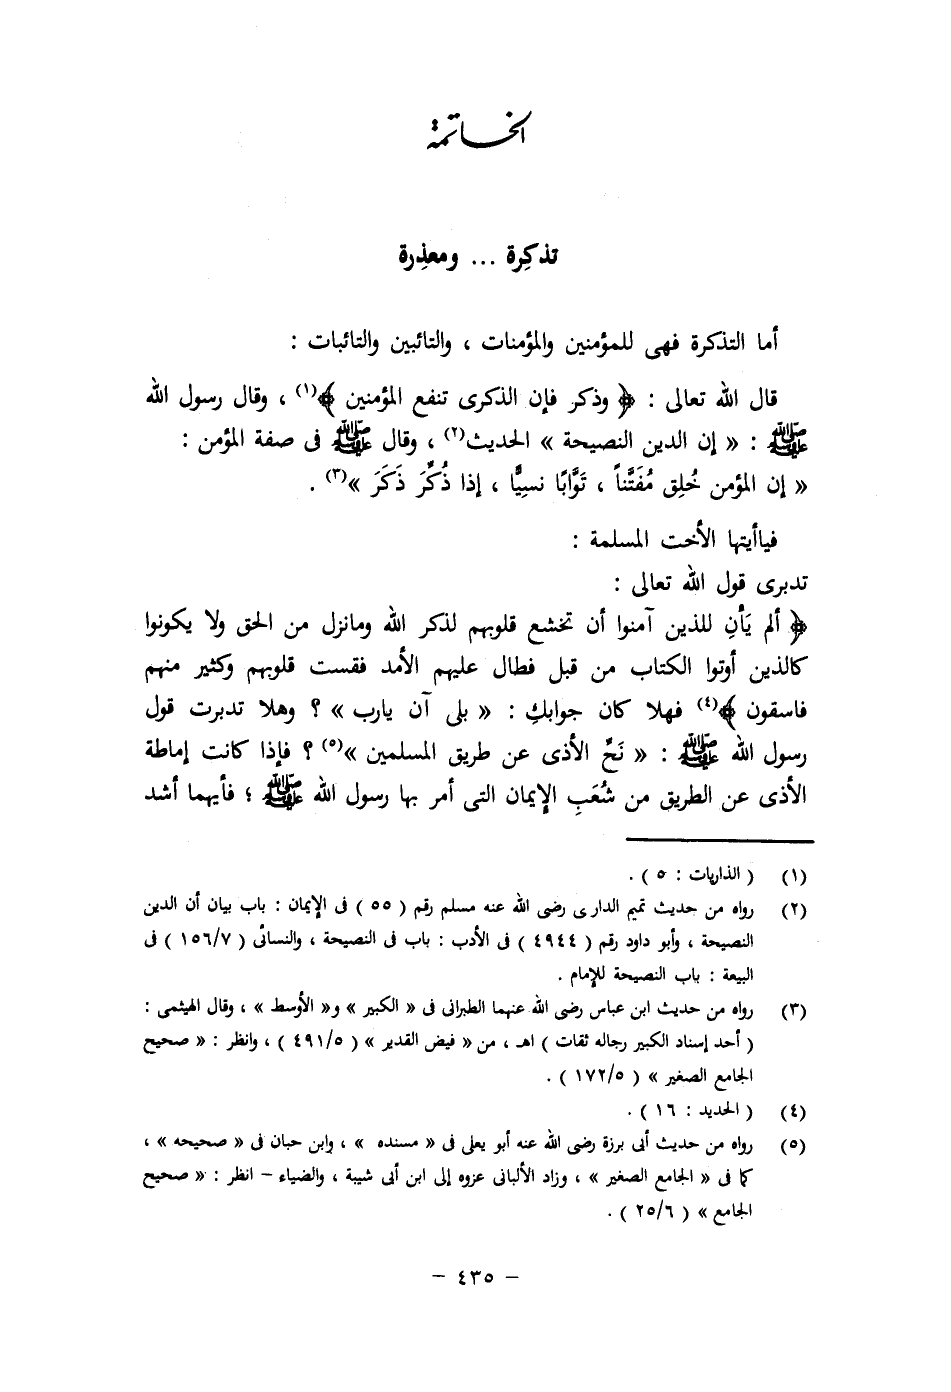 الخاتمة
تذكِرة ... ومعذِرة
أما التذكرة فهى للمؤمنين والمؤمنات ، والتائبين والتائبات :
قال الله تعالى : ﴿ وذكر فإن الذكرى تنفع المؤمنين ﴾(١) ، وقال رسول الله
ﷺ : « إن الدين النصيحة » الحديث(٢) ، وقال ﷺ فى صفة المؤمن :
« إن المؤمن خُلِق مُفَتَّناً ، تَوَّابًا نسِيًّا ، إذا ذُكِّرَ ذَكَرَ »(٣) .
فياأيتها الأخت المسلمة :
تدبرى قول الله تعالى :
﴿ ألم يَأنِ للذين آمنوا أن تخشع قلوبهم لذكر الله ومانزل من الحق ولا يكونوا
كالذين أوتوا الكتاب من قبل فطال عليهم الأمد فقست قلوبهم وكثير منهم
فاسقون ﴾(٤) فهلا كان جوابكِ : « بلى آن يارب » ؟ وهلا تدبرت قول
رسول الله ﷺ : « نَحِّ الأذى عن طريق المسلمين »(٥) ؟ فإذا كانت إماطة
الأذى عن الطريق من شُعَبِ الإيمان التى أمر بها رسول الله ﷺ ؛ فأيهما أشد
(١) ( الذاريات : ٥ ) .
(٢) رواه من حديث تميم الدارى رضى الله عنه مسلم رقم ( ٥٥ ) فى الإيمان : باب بيان أن الدين
النصيحة ، وأبو داود رقم ( ٤٩٤٤ ) فى الأدب : باب فى النصيحة ، والنسائى ( ١٥٦/٧ ) فى
البيعة : باب النصيحة للإمام .
(٣) رواه من حديث ابن عباس رضى الله عنهما الطبرانى فى « الكبير » و« الأوسط » ، وقال الهيثمى :
( أحد إسناد الكبير رجاله ثقات ) اهـ ، من « فيض القدير » ( ٤٩١/٥ ) ، وانظر : « صحيح
الجامع الصغير » ( ١٧٢/٥ ) .
(٤) ( الحديد : ١٦ ) .
(٥) رواه من حديث أبى برزة رضى الله عنه أبو يعلى فى « مسنده » ، وابن حبان فى « صحيحه » ،
كما فى « الجامع الصغير » ، وزاد الألبانى عزوه إلى ابن أبى شيبة ، والضياء – انظر : « صحيح
الجامع » ( ٢٥/٦ ) .
– ٤٣٥ –